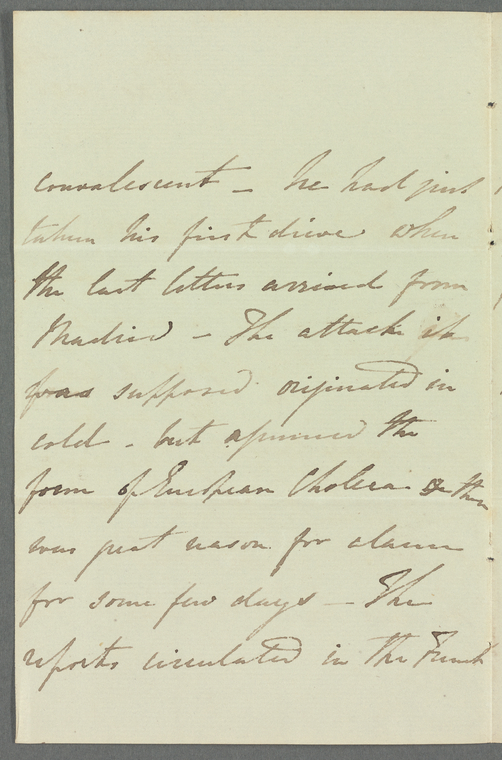 convalescent – he had just
taken his first drive when
the last letters arrived from
Madrid – The attack it
was supposed originated in
cold – but assumed the
form of European Cholera & there
was great reason for alarm
for some few days – The
reports circulated in the French